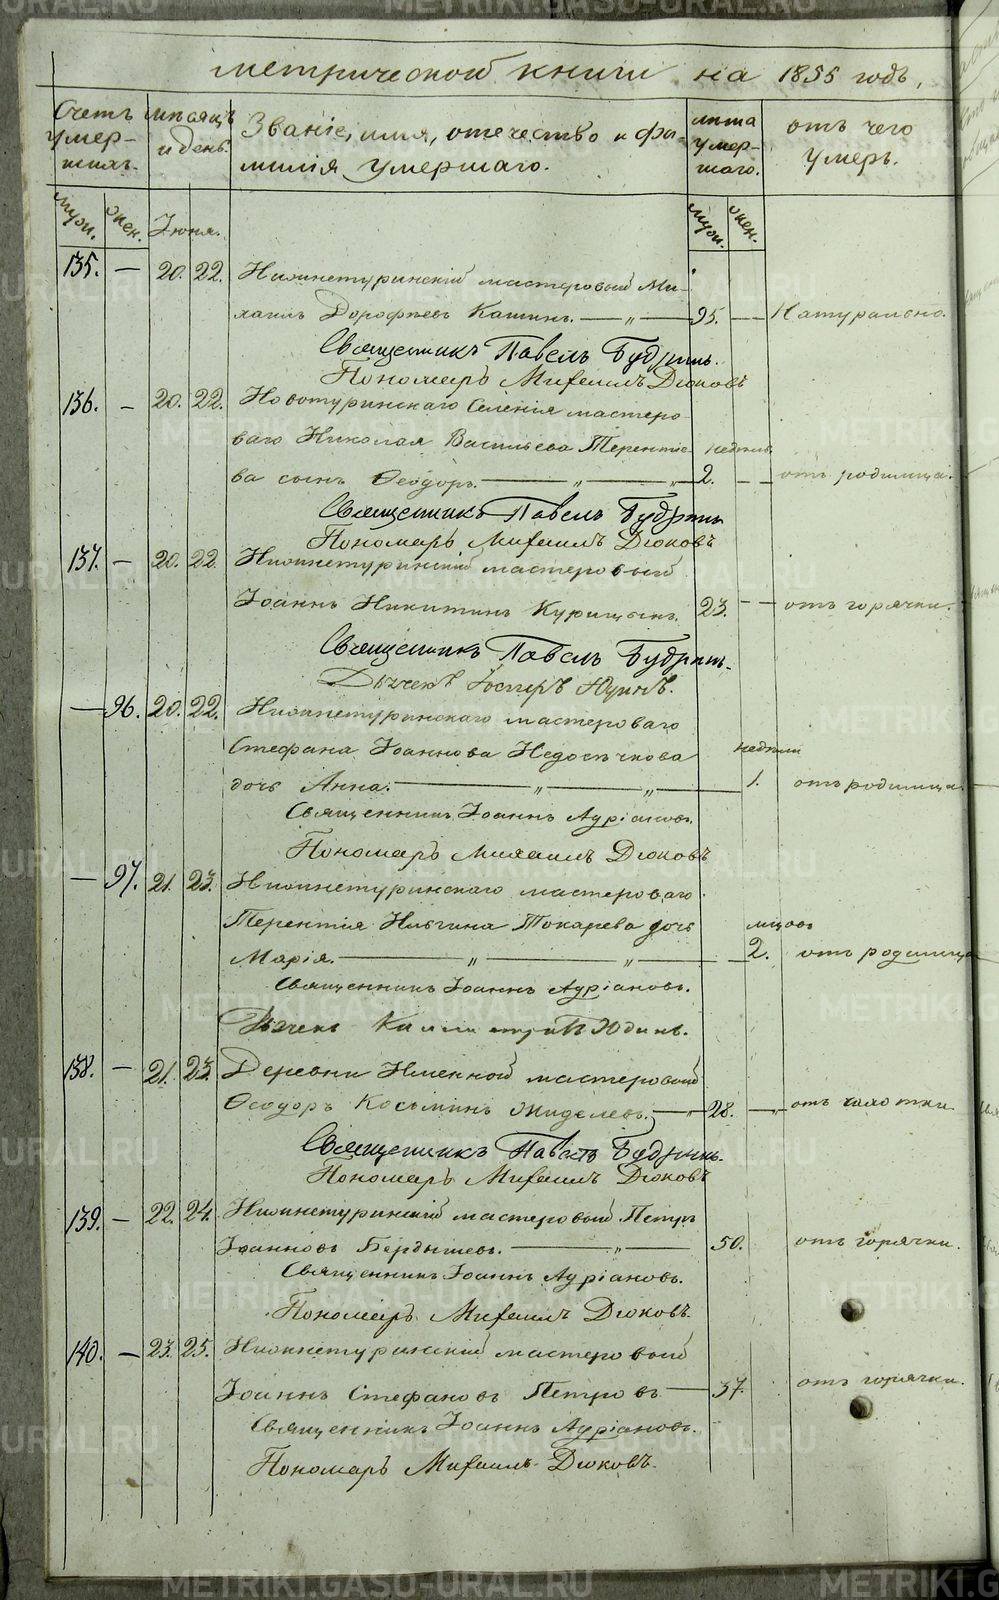 метрической книги на 1855 годъ,
Счетъ умер-шихъ. мѣсяцъ и день. Званіе, имя, отечество и фа-милія умершаго. лѣта умер-шаго. отъ чего умеръ.
муж. жен. Іюня. муж. жен.
135. — 20. 22. Нижнетуринскій мастеровый Ми-
хаилъ Дорофѣевъ Кашинъ. — " — 95. — Натурально.
Священникъ Павелъ Будринъ.
Пономарь Михаилъ Дюковъ
136. — 20. 22. Новотуринскаго Селенія мастеро
ваго Николая Васильева Терентье недѣль
ва сынъ Ѳеодоръ. — " — " — 2. — — отъ родимца.
Священникъ Павелъ Будринъ
Пономарь Михаилъ Дюковъ
137. — 20. 22. Нижнетуринскій мастеровый
Іоаннъ Никитинъ Курицынъ. 23. — — отъ горячки.
Священникъ Павелъ Будринъ.
Дьячекъ Юдинъ.
— 96. 20. 22. Нижнетуринскаго мастероваго
Стефана Іоаннова Недосѣчкова недѣли
дочь Анна. — " — " — 1. отъ родимца.
Священникъ Іоаннъ Адріановъ.
Пономарь Михаилъ Дюковъ
— 97. 21. 23. Нижнетуринскаго мастероваго
Терентія Токарева дочь мѣсяцовъ
Марія. — " — " — 2. отъ родимца
Священникъ Іоаннъ Адріановъ.
Дьячекъ Юдинъ.
138. — 21. 23. Деревни Именной мастеровый
Ѳеодоръ Косьминъ Жиделевъ. — " 28. — " отъ чахотки.
Священникъ Павелъ Будринъ.
Пономарь Михаилъ Дюковъ
139. — 22. 24. Нижнетуринскій мастеровый Петръ
Іоанновъ Бердышевъ. — " — 50. отъ горячки.
Священникъ Іоаннъ Адріановъ.
Пономарь Михаилъ Дюковъ.
140. — 23. 25. Нижнетуринскій мастеровый
Іоаннъ Стефановъ Петровъ — 37. отъ горячки.
Священникъ Іоаннъ Адріановъ.
Пономарь Михаилъ Дюковъ.
METRIKI.GASO-URAL.RU